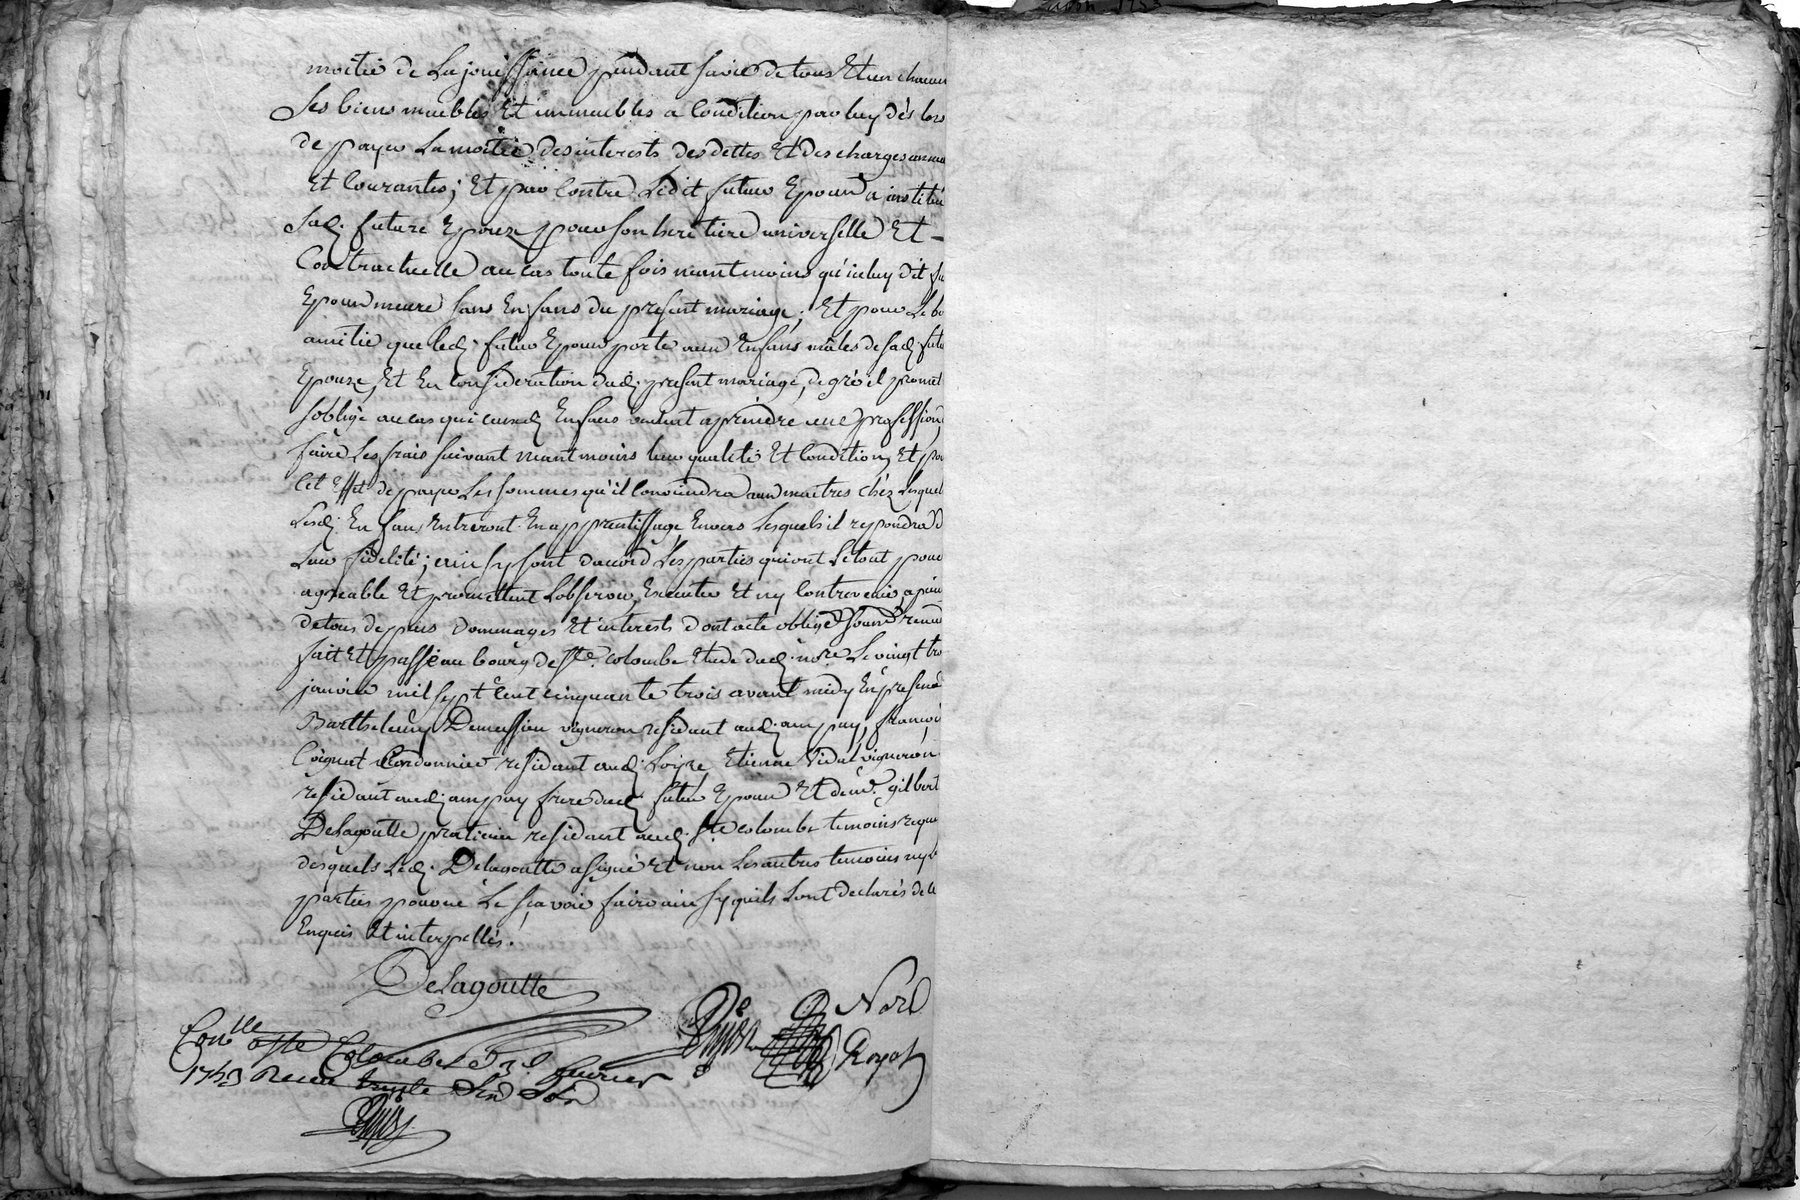 moitié de La jouissance pendant sa vie de tous Et un chacun
Ses biens meubles Et immeubles a Condition par luy dès lors
de payer La moitié des interests des dettes Et des charges annu
Et Courantes; Et par Contre Ledit futur Epoux a institué
Sad. future Epouze pour son heretiere universelle Et -
Contractuelle au cas toute fois neantmoins qu'iceluy dit fu
Epoux meure sans Enfans du present mariage; Et pour Le bo
amitie que led. futur Epoux porte aux Enfans mâles de sad. futu
Epouze, Et En Consideration dud. present mariage, de gré il promet
soblige au cas que lesd. Enfans veulent aprendre une profession,
faire Les frais suivant neantmoins leur qualité Et Condition, Et po
Cet Effet de payer Les sommes qu'il Conviendra aux maitres chéz Lesquel
Lesd. Enfans Entreront En apprentissage, Envers Lesquels il repondra d
Leur fidelité; ainsy sont d'accord Les parties qui ont Le tout pour
agreable Et promettent L'observer, Executer Et ny Contrevenir, a pein
de tous depens Dommages Et interests dont acte obligé soum. renon
fait Et passé au bourg de Ste. Colombe Etude dud. nore. Le vingt tro
janvier mil sept Cent cinquante trois avant midy En presence
Barthelemy Demession vigneron residant aud. ampuy, françois
Coignat Cordonnier residant aud. Loire, Etienne Vidal vigneron
residant aud. ampuy frere dud. futur Epoux Et de mr. gilbert
Delagoutte praticien residant aud. Ste Colombe temoins requis
desquels Led. Delagoutte a signé Et non Les autres temoins ny l
parties pour ne Le sçavoir faire ainsy quils L'ont declarés de ce
Enquis Et interpellés.
Delagoutte
Nore
Royal
Conlle a Ste Colombe Le 3e fevrier
1753 Receu